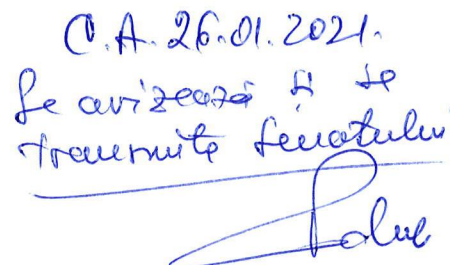 C.A. 26.01.2021.
Se avizează și se
transmite Senatului